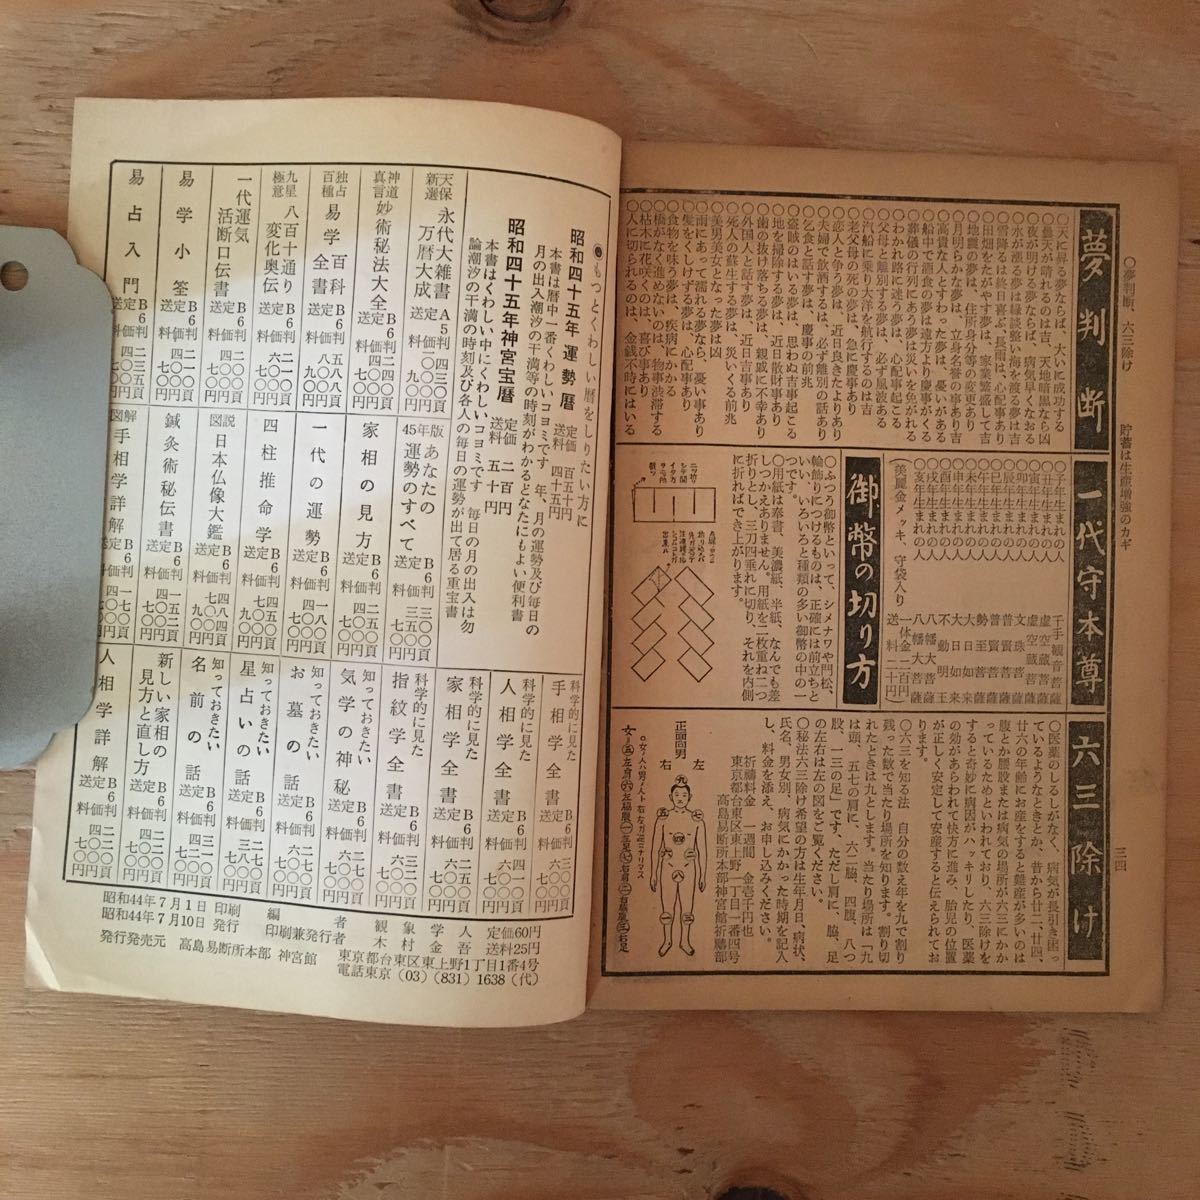 ○夢判断、六三除け
貯蓄は生産増強のカギ
三四
夢判断
○天に昇る夢ならば、大いに成功する
○曇天が晴れるのは吉、天地暗黒なら凶
○夜が明ける夢ならば、病気早くなおる
○水が漲る夢は縁談整い海を渡る夢は吉
○雪降るは終日喜ぶ、長雨は、心配事あり
○田畑をたがやす夢は、家業繁盛して吉
○地震の夢は、住所身分等の変更あり
○月明らかな夢は、立身名誉の事あり吉
○高貴な人とすわった夢は、憂いがある
○船中で酒食の夢は遠方より慶事がくる
○葬儀の行列にある夢は災いを免がれる
○わかれ路に迷う夢は、心配事起こる
○父母と離別する夢は、必ず風波ある
○汽船に乗り大洋を航行するのは吉
○老父母の死の夢は、急に慶事あり
○恋人と争う夢は、近日良きたよりあり
○夫婦で飲酒するは、必ず離別の話あり
○乞食と話す夢は、慶事の前兆
○盗賊のはいる夢は、思わぬ吉事起こる
○地を掃除する夢は、近日散財事あり
○歯の抜け落ちる夢は、親戚に不幸あり
○外国人と話す夢は、近日吉事あり
○死人の蘇生する夢は、災いくる前兆
○美男美女となった夢は凶
○雨にあって濡れる夢なら、憂い事あり
○髪をくしけずる夢は、心配事あり
○食物を味う夢は、疾病にかかる
○船がなく進めないのは、物事渋滞する
○枯木に花咲くのは、喜び事あり
○人に切られるのは、金銭不時にはいる
一代守本尊
○子年生まれの人 千手観音菩薩
○丑年生まれの人 虚空蔵菩薩
○寅年生まれの人 虚空蔵菩薩
○卯年生まれの人 文珠菩薩
○辰年生まれの人 普賢菩薩
○巳年生まれの人 普賢菩薩
○午年生まれの人 勢至菩薩
○未年生まれの人 大日如来
○申年生まれの人 大日如来
○酉年生まれの人 不動明王
○戌年生まれの人 八幡大菩薩
○亥年生まれの人 八幡大菩薩
(美麗金メッキ、守袋入り 一体金二百円 送料二十円)
御幣の切り方
○ふつう御幣といって、シメナワや門松、
輪飾りにつけるものは、正確には前立ちと
いい、いろいろと種類の多い御幣の中の一
つです。
○用紙は奉書、美濃紙、半紙、なんでも差
しつかえありません。用紙を二枚重ね二つ
折りとし、三刀四垂れに切り、それを内側
に折ればでき上がります。
六三除け
○医薬のしるしがなく、病気が長引き困っ
ているようなときとか、昔から廿二、廿四、
廿六の年齢にお産をすると難産が多いのは
腹とか腰股または病気の場所が六三にかか
っているためといわれており、六三除けを
すると奇妙に病因がハッキリしたり、医薬
の効があらわれて快方に進み、胎児の位置
が正しく安定して安産すると伝えられてお
ります。
○六三を知る法 自分の数え年を九で割り
残った数で当たり場所を知ります。割り切
れたときは九とします。当たり場所は「九
は頭、五七の肩に、六二脇、四腹、八つ
股、一三の足」です、ただしに、脇、足
の左右は左の図をご覧ください。
○秘法六三除け希望の方は生年月日、病状、
氏名、男女別、病気にかかった時期を記入
し、料金を添え、お申し込みください。
祈禱料金 一週間 金壱千円也
東京都台東区東上野一丁目一番四号
高島易断所本部神宮館祈禱部
正面向男
右
左
九
●もっとくわしい暦をしりたい方に
昭和四十五年運勢暦 定価 百五十円 送料 四十五円
本書は暦中一番くわしいコヨミです、年、月の運勢及び毎日の
月の出入潮汐の干満等の時刻がわかるとなたにもよい便利書
昭和四十五年神宮宝暦 定価 二百円 送料 五十円
本書はくわしい中にくわしいコヨミです 毎日の月の出入は勿
論潮汐の干満の時刻及び各人の毎日の運勢が出て居る重宝書
天保新選 永代大雑書万暦大成 A5判 四三〇頁
神道真言 妙術秘法大全 B6判
独占百種 易学百科全書 B6判 五八八頁
九星極意 八百十通り変化奥伝 B6判
一代運気活断口伝書 B6判
易学小筌 B6判
易占入門 B6判 二三五頁
45年版 あなたの運勢のすべて B6判
家相の見方 B6判
一代の運勢 B6判
四柱推命学 B6判
図説 日本仏像大鑑 B6判
鍼灸術秘伝書 B6判
図解 手相学詳解 B6判
科学的に見た 手相学全書 B6判
科学的に見た 人相学全書 B6判
科学的に見た 家相学全書 B6判
科学的に見た 指紋学全書 B6判
知っておきたい 気学の神秘 B6判
知っておきたい お墓の話 B6判
知っておきたい 星占いの話 B6判
知っておきたい 名前の話 B6判
新しい家相の見方と直し方 B6判
人相学詳解 B6判
昭和44年7月1日 印刷
昭和44年7月10日 発行
編者 観象学人
印刷兼発行者 木村金吾
定価60円
送料25円
発行発売元 高島易断所本部 神宮館 東京都台東区東上野1丁目1番4号
電話東京 (03) (831) 1638 (代)